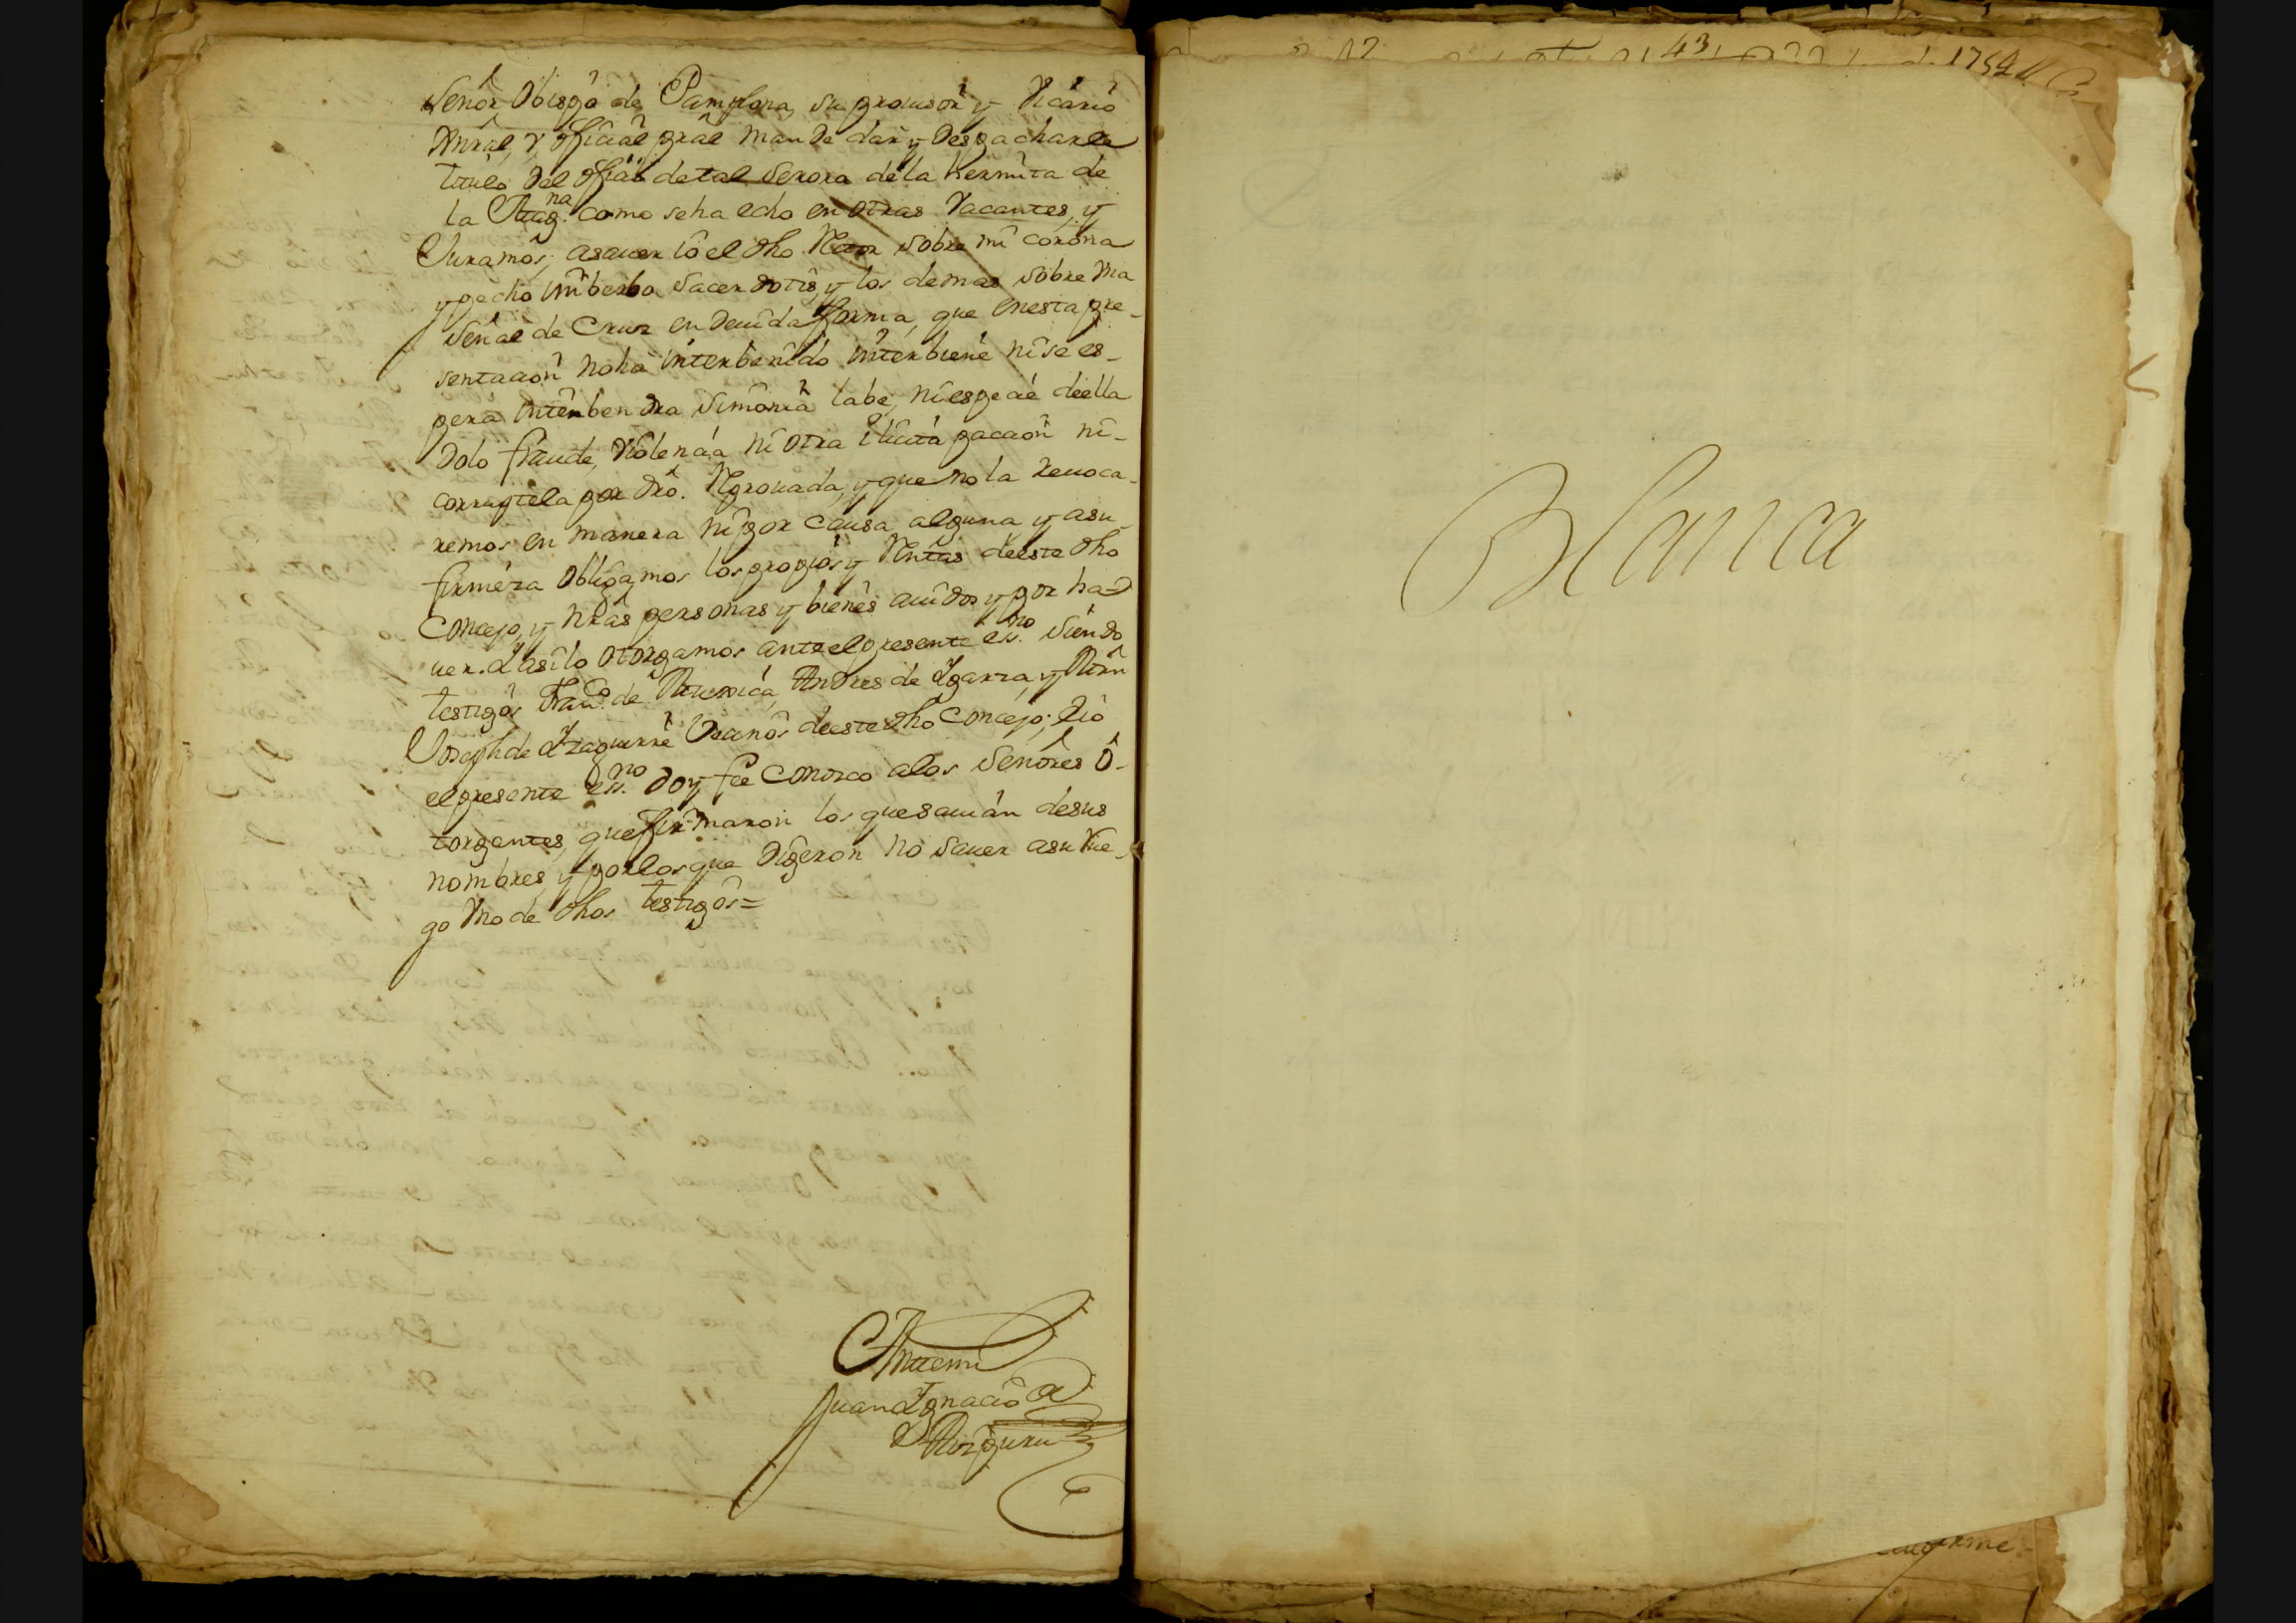 Señor Obispo de Pamplona, su prouisor y Vicario
Gnral, y oficial gral mande dar y despacharle
titulo del ofiçio de tal Serora de la Hermita de
la Mag.na como se ha echo en otras Vacantes, y
Juramos, asauer Io el dho Retor sobre mi corona
y pecho in berbo Sacerdotis, y los demas sobre Vna
Señal de Cruz en deuida forma, que en esta pre-
sentacion no ha interbenido interbiene ni se es-
pera interbendra Simonia labe, ni especie de ella
dolo fraude, Violencia ni otra ilicita paccion ni-
corruptela por dro. Reprouada, y que no la reuoca-
remos en manera ni por causa alguna y a su
firmeza obligamos los propios y Rentas de este dho
Concejo, y nras personas y bienes auidos y por ha-
uer. Y asi lo otorgamos ante el presente ess.no siendo
testigos Fran.co de Andres de Ygarza, y Mrn
Joseph de Yzaguirre Vecinos de este dho Concejo; Y io
el presente ess.no doy fee conozco a los Señores o-
torgantes, que firmaron los que sauian de sus
nombres, y por los que digeron no sauer a su Rue-
go Vno de dhos testigos=
Antemi
Juan Ygnacio de
43
1754
Blanca